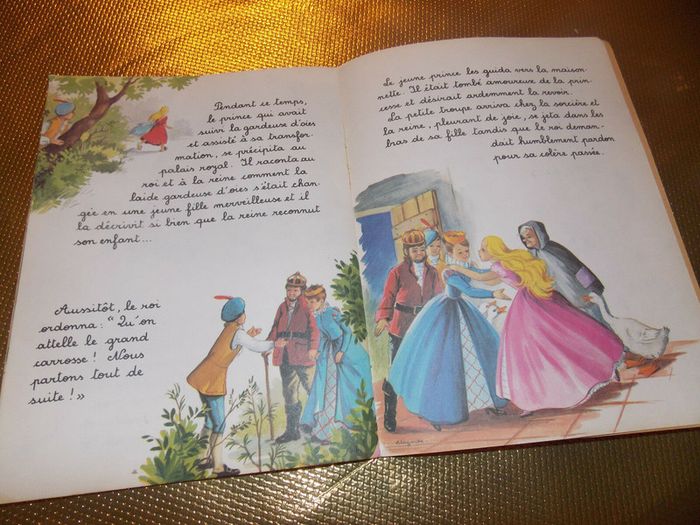 Pendant ce temps,
le prince qui avait
suivi la gardeuse d'oies
et assisté à sa transfor-
mation, se précipita au
palais royal. Il raconta au
roi et à la reine comment la
laide gardeuse d'oies s'était chan-
gée en une jeune fille merveilleuse et il
la décrivit si bien que la reine reconnut
son enfant...
Aussitôt, le roi
ordonna : "Qu'on
attelle le grand
carrosse ! Nous
partons tout de
suite !»
Le jeune prince les guida vers la maison-
nette. Il était tombé amoureux de la prin-
cesse et désirait ardemment la revoir.
La petite troupe arriva chez la sorcière et
la reine, pleurant de joie, se jeta dans les
bras de sa fille tandis que le roi deman-
dait humblement pardon
pour sa colère passée.